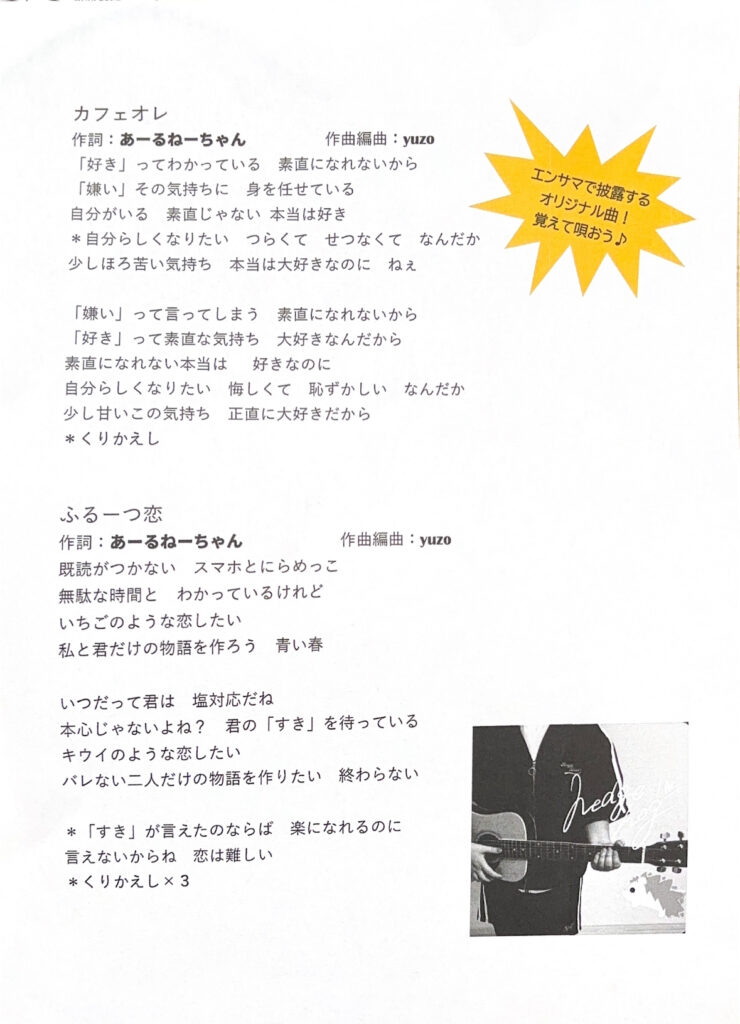 カフェオレ
作詞：あーるねーちゃん　作曲編曲：yuzo
「好き」ってわかっている　素直になれないから
「嫌い」その気持ちに　身を任せている
自分がいる　素直じゃない 本当は好き
＊自分らしくなりたい　つらくて　せつなくて　なんだか
少しほろ苦い気持ち　本当は大好きなのに　ねぇ
「嫌い」って言ってしまう　素直になれないから
「好き」って素直な気持ち　大好きなんだから
素直になれない本当は　好きなのに
自分らしくなりたい　悔しくて　恥ずかしい　なんだか
少し甘いこの気持ち　正直に大好きだから
＊くりかえし
エンサマで披露する
オリジナル曲！
覚えて唄おう♪
ふるーつ恋
作詞：あーるねーちゃん　作曲編曲：yuzo
既読がつかない　スマホとにらめっこ
無駄な時間と　わかっているけれど
いちごのような恋したい
私と君だけの物語を作ろう　青い春
いつだって君は　塩対応だね
本心じゃないよね？　君の「すき」を待っている
キウイのような恋したい
バレない二人だけの物語を作りたい　終わらない
＊「すき」が言えたのならば　楽になれるのに
言えないからね　恋は難しい
＊くりかえし×３